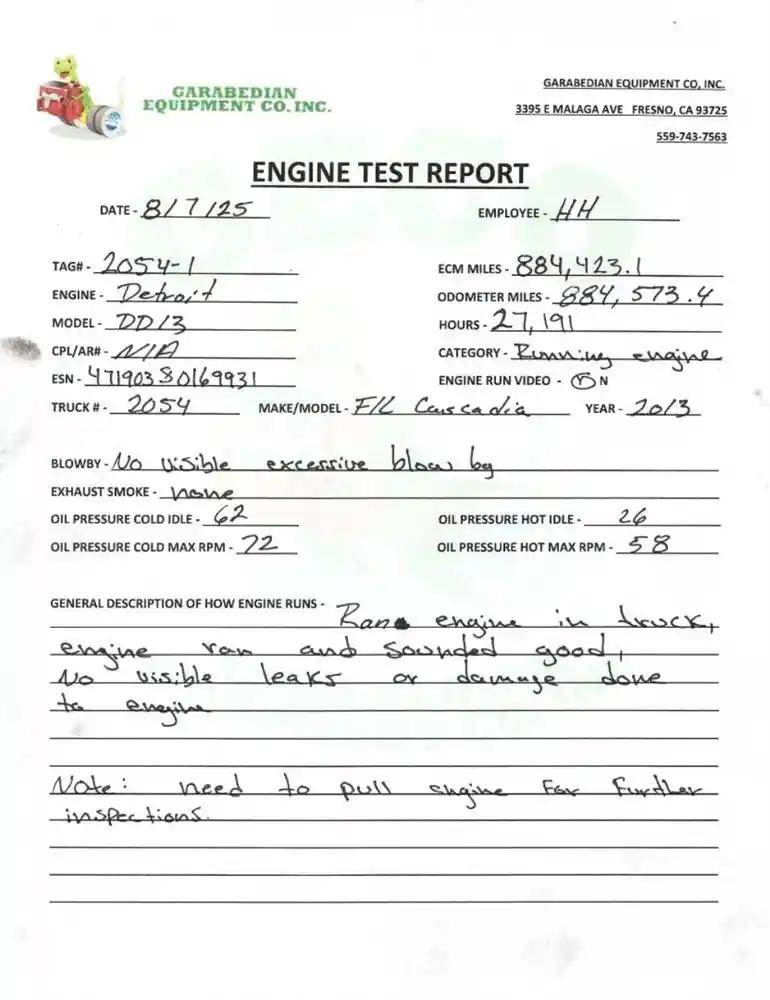 GARABEDIAN
EQUIPMENT CO. INC.
GARABEDIAN EQUIPMENT CO, INC.
3395 E MALAGA AVE FRESNO, CA 93725
559-743-7563
ENGINE TEST REPORT
DATE - 8/7/25 EMPLOYEE - HH
TAG# - 2054-1 ECM MILES - 884,423.1
ENGINE - Detroit ODOMETER MILES - 884,573.4
MODEL - DD13 HOURS - 27,191
CPL/AR# - N/A CATEGORY - Running engine
ESN - 471903S0169931 ENGINE RUN VIDEO - Y N
TRUCK # - 2054 MAKE/MODEL - F/L Cascadia YEAR - 2013
BLOWBY - No visible excessive blow by
EXHAUST SMOKE - none
OIL PRESSURE COLD IDLE - 62 OIL PRESSURE HOT IDLE - 26
OIL PRESSURE COLD MAX RPM - 72 OIL PRESSURE HOT MAX RPM - 58
GENERAL DESCRIPTION OF HOW ENGINE RUNS - Ran engine in truck,
engine ran and sounded good,
No visible leaks or damage done
to engine
Note: need to pull engine for further
inspections.